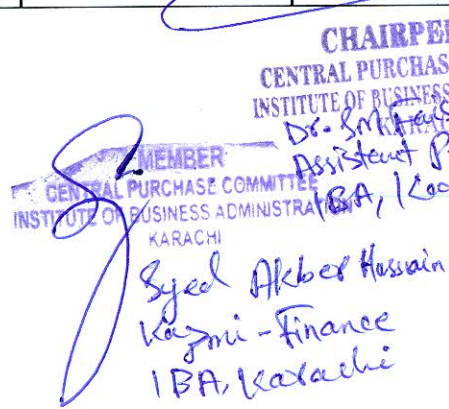 CHAIRPE
CENTRAL PURCHAS
INSTITUTE OF BUSINESS
KARA
Dr. SM Fais
Assistant P
IBA, Ka
MEMBER
CENTRAL PURCHASE COMMITTEE
INSTITUTE OF BUSINESS ADMINISTRATION
KARACHI
Syed Akber Hussain
Kazmi - Finance
IBA, Karachi